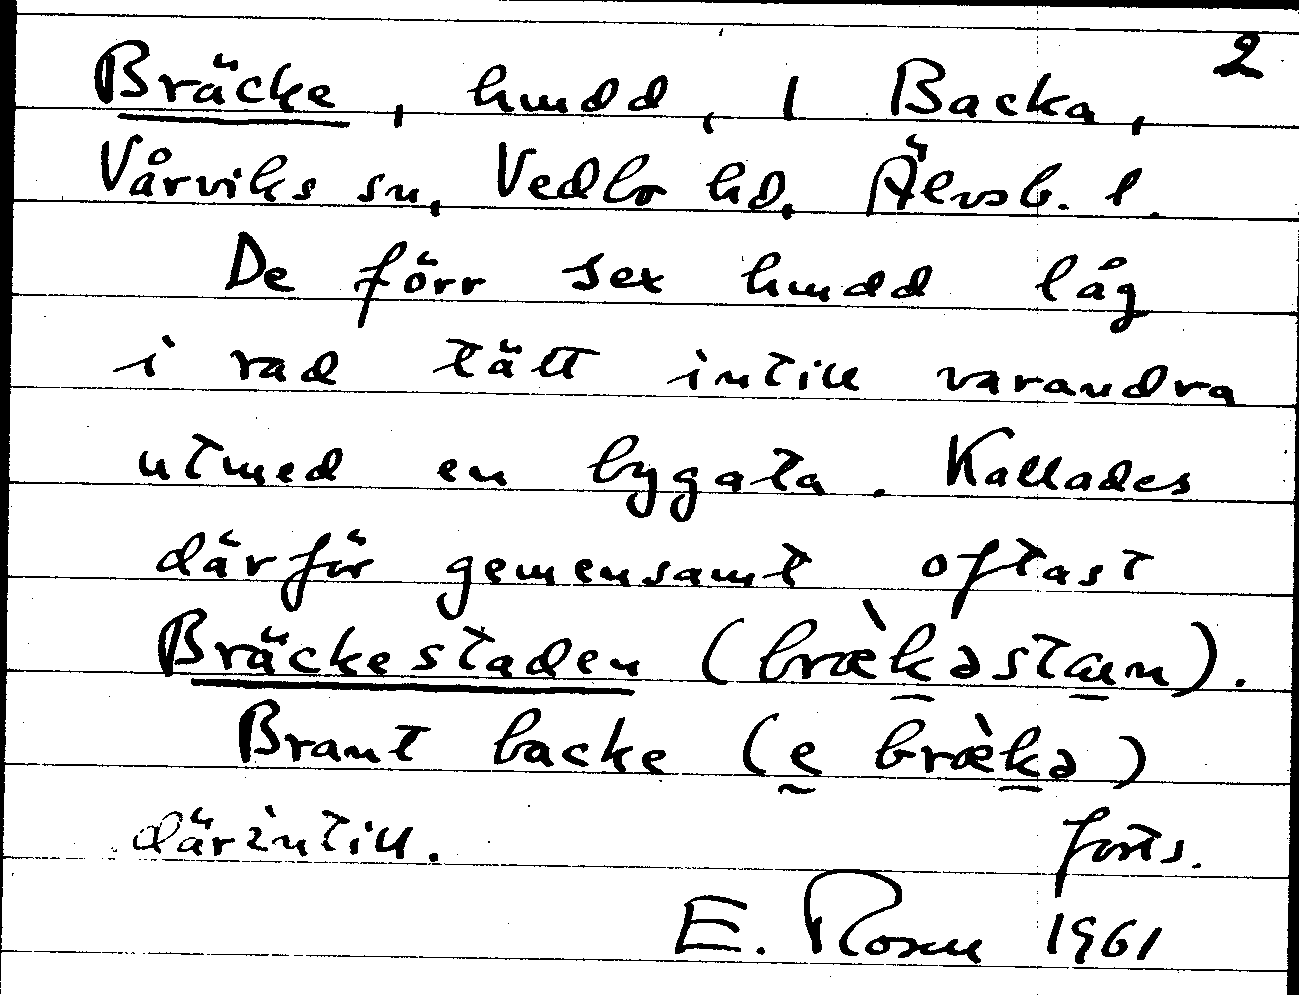 2
Bräcke, hmdd, 1 Backa,
Vårviks sn, Vedbo hd, Älvsb. l.
De förr sex hmdd låg
i rad tätt intill varandra
utmed en bygata. Kallades
därför gemensamt oftast
Bräckestaden (bræ̀kəstan).
Brant backe (e bræ̀kə)
därintill. forts.
E. Rosen 1961